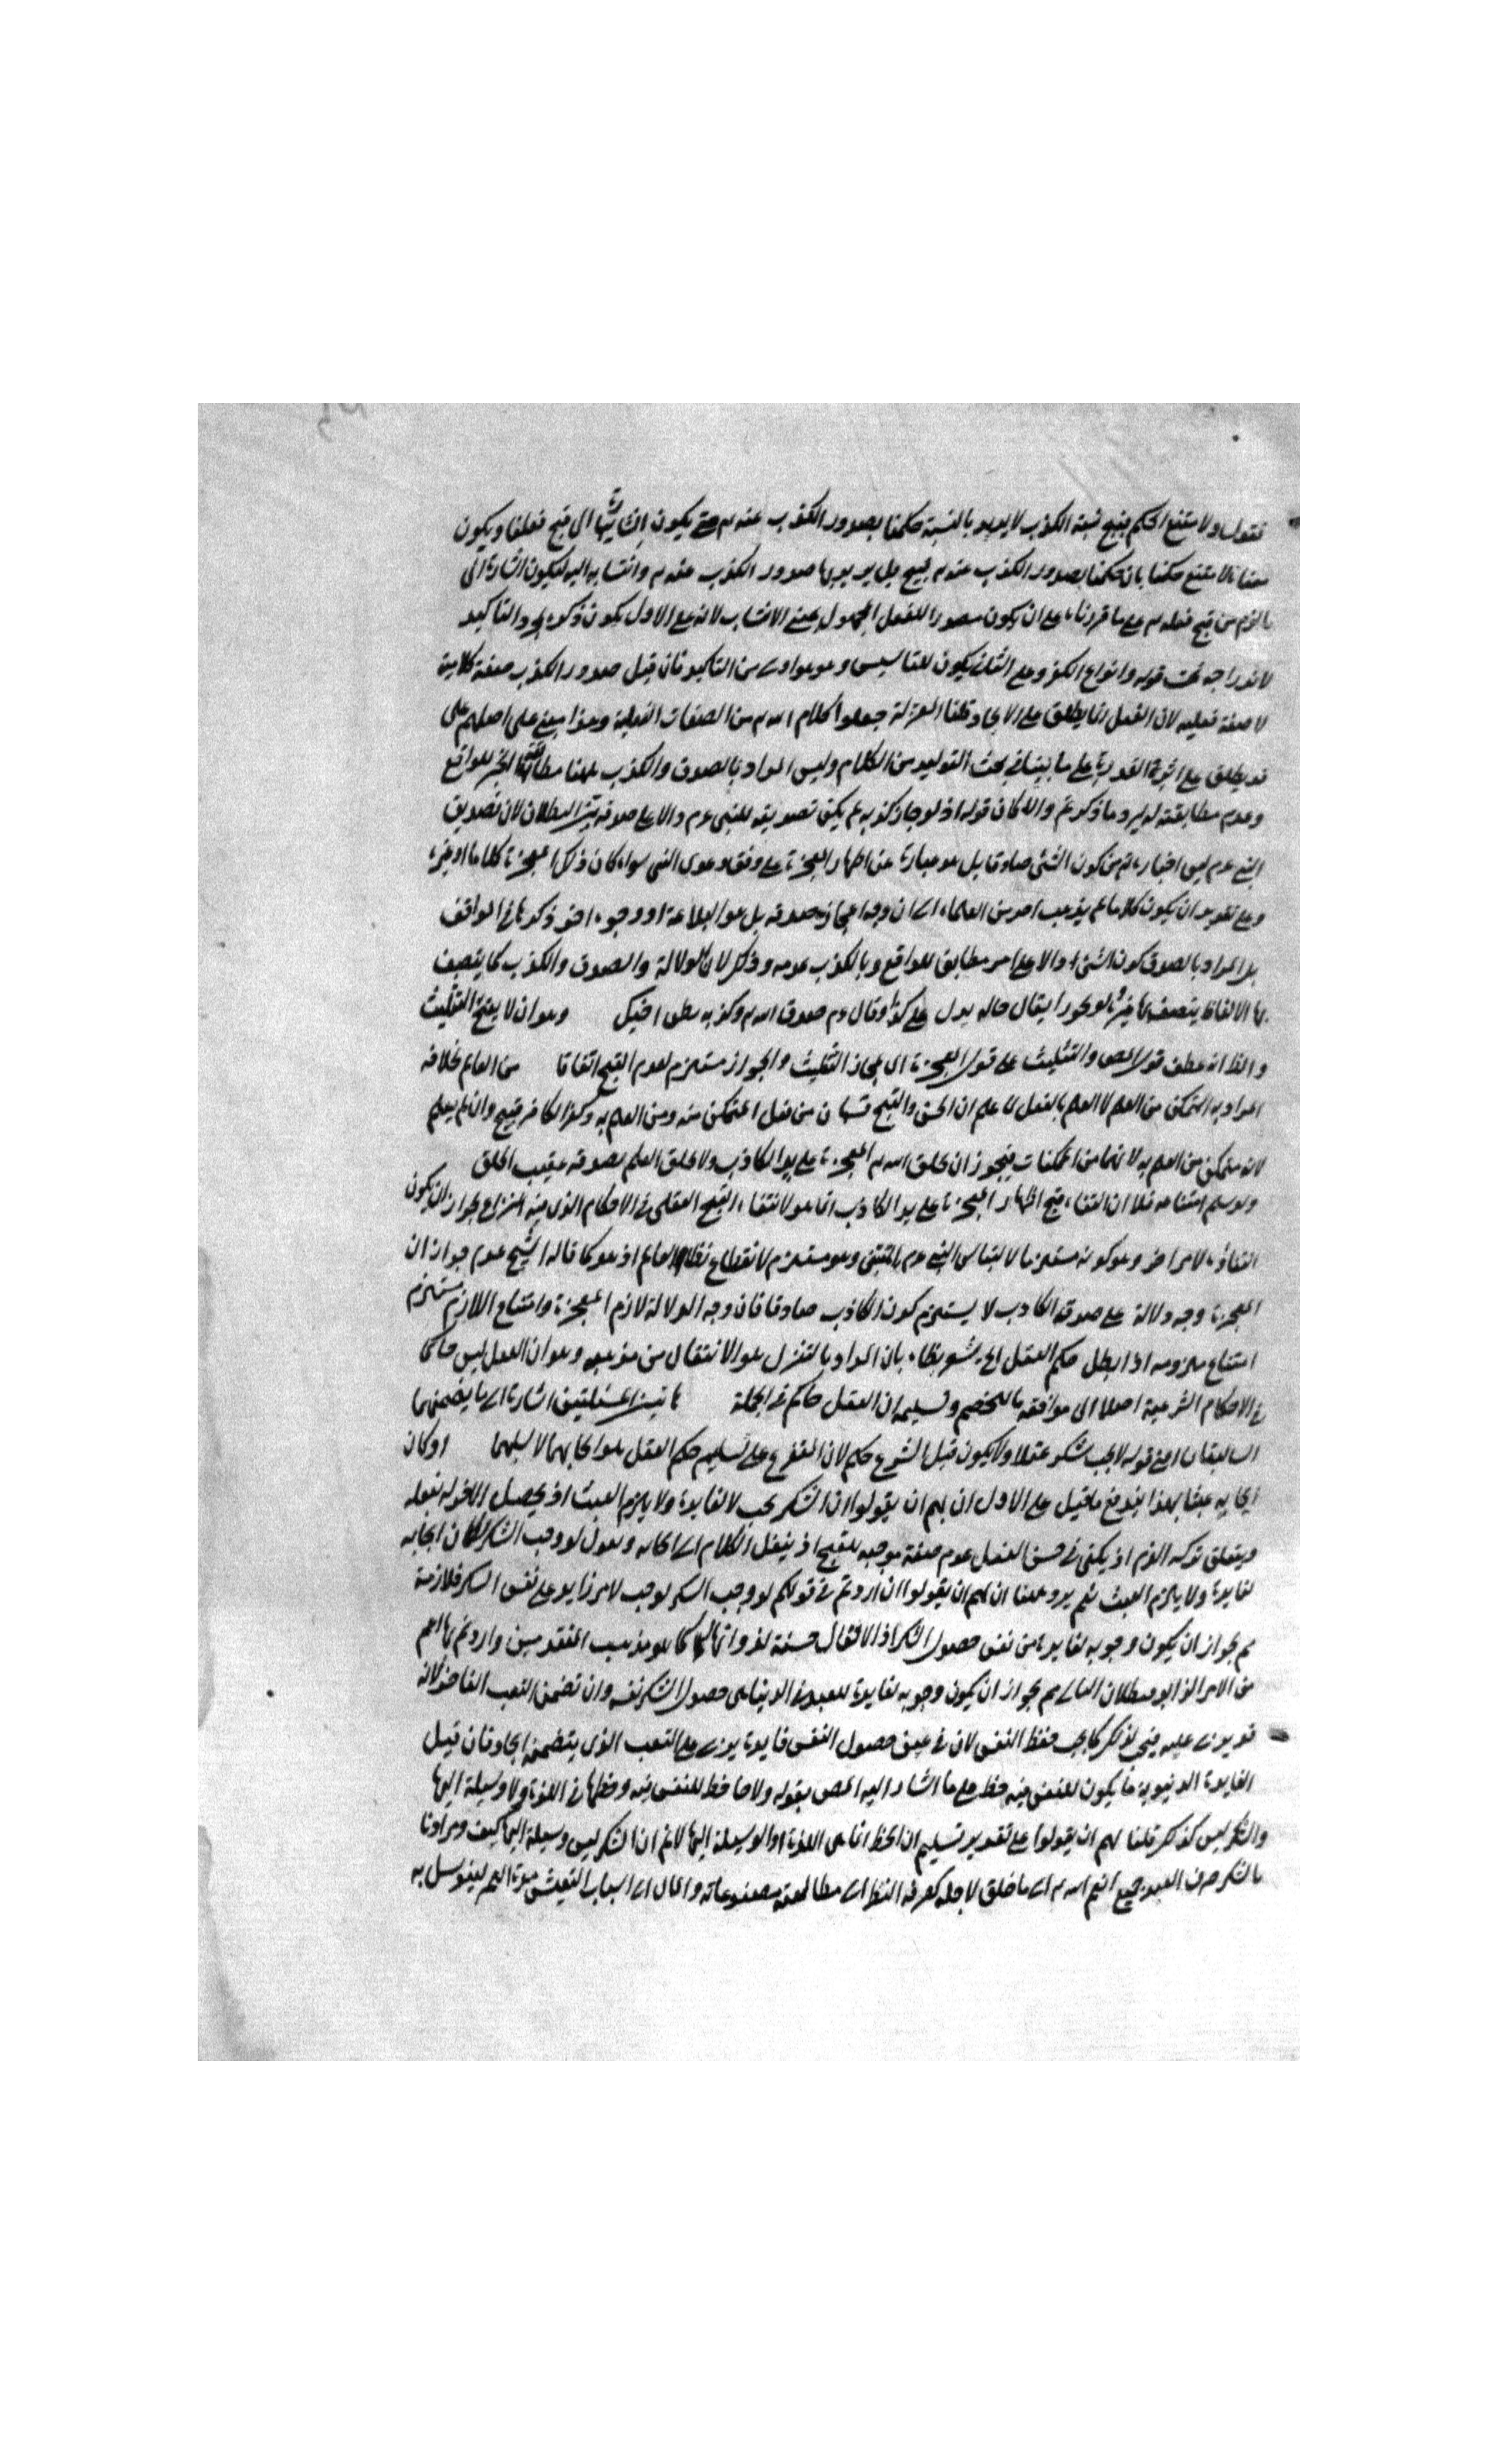 فنقول ولا متنع الحكم بقبح نسبة الكذب لا يريد بالنسبة حكمنا بصدور الكذب عنه تع حتى يكون اشارتها الى قبح فعلنا ويكون
معناه لا متنع حكمنا بان حكمنا بصدور الكذب عنه تع قبيح بل يريد بها صدور الكذب عنه تع وانتسابه اليه ليكون اشارة الى
ما لزم من قبح فعله تع على ما قررناه على ان يكون مصدرا للفعل المجهول بمعنى الانتساب لانه على الاول يكون ذكره لمجرد التاكيد
لاندراجه تحت قوله وانواع الكفر وعلى الثاني يكون للتاسيس وهو اولى من التاكيد فان قيل صدور الكذب صفة كلامية
لا صفة فعلية لان الفعل انما يطلق على الايجاد قلنا المعتزلة جعلوا كلام الله تع من الصفات الفعلية وهذا مبني على اصلهم على
قد يطلق على اثر القدرة على ما بيناه في بحث التوليد من الكلام وليس المراد بالصدق والكذب ههنا مطابقة الخبر للواقع
وعدم مطابقته له ليرد ما ذكرتم والا لكان قوله اذ لو جاز كذبه لم يكن تصديقه للنبي عم دالا على صدقه بين البطلان لان تصديق
النبي عم ليس اخباره تع من كون الشئ صادقا بل هو عبارة عن اظهار المعجزة على وفق دعوى النبي سواء كان ذلك المعجزة كلاما او غيره
وعلى تقدير ان يكون كلاما لم يذهب احد من العلماء الى ان وجه اعجازه صدقه بل هو البلاغة او وجوه اخر ذكرها في المواقف
بل المراد بالصدق كون الشئ دالا على امر مطابق للواقع وبالكذب عدمه وذلك لان الدلالة والصدق والكذب كما يتصف
بها الالفاظ يتصف بها غيرها لو تجوزا يقال حاله يدل على كذا وقال عم صدق الله تع وكذب بطن اخيك وهو ان لا يقبح التثليث
والظ انه عطف قول المص والتثليث على قول المعجزة اى لجاز التثليث والجواز مستلزم لعدم القبح اتفاقا من العالم بخلافه
المراد به المتمكن من العلم لا العلم بالفعل لما علم ان الحسن والقبح قسمان من فعل المتمكن منه ومن العلم به وكفر الكافر قبيح وان لم يعلم
لانه متمكن من العلم به لانها من الممكنات فيجوز ان يخلق الله تع المعجزة على يد الكاذب ولا يخلق العلم بصدقه عقيب الخلق
ولو سلم امتناعه فلا ان انتفاء قبح اظهار المعجزة على يد الكاذب انما هو لانتفاء القبح العقلى في الاحكام الذى فيه النزاع لجواز ان يكون
انتفاؤه لامر اخر وهو كونه مستلزما لالتباس النبي عم بالمتنبى وهو مستلزم لانقطاع نظام العالم اذ هو كما قاله الشيخ عدم جواز ان
المعجزة وجه دلالة على صدق الكاذب لا يستلزم كون الكاذب صادقا فان وجه الدلالة لازم المعجزة وامتناع اللازم مستلزم
امتناع ملزومه اذا بطل حكم العقل الى يشعر بظاه بان المراد بالتنزل هو الانتقال من مذهبه وهو ان العقل ليس حاكما
في الاحكام الشرعية اصلا الى موافقة ما للخصم وتسليم ان العقل حاكم في الجملة هاتين المسئلتين اشارة الى ما يضمنهما
السابقان اعنى قوله لا يجب شكر عقلا ولا يكون قبل الشرع حكم لان التفرع على تسليم حكم العقل هو ايجابهما لا سلبهما او كان
ايجابه عبثا بهذا يندفع ما قيل على الاول ان لهم ان يقولوا ان الشكر يجب لا لفايدة ولا يلزم العبث اذ تحصيل
ويتعلق تركه الذم اذ يكفى في حسن الفعل عدم صفة موجبه للقبح اذ ينقل الكلام الى ايجابه ونقول لو وجب الشكر لكان ايجابه
لفايدة ولا يلزم العبث نعم يرد ههنا ان لهم ان يقولوا ان اردتم في قولكم لو وجب الشكر لوجب لامر زايد على نفس الشكر فلازمة
ثم لجواز ان يكون وجوبه لفايدة من نفس حصول الشكر اذ الافعال حسنة لذواتها كما هو مذهب المتقدمين واردتم بها اعم
من الامر الزايد فبطلان التالى ثم لجواز ان يكون وجوبه لفايدة للعبد في الدنيا هي حصول الشكر نفسه وان تضمن التعب الناجز لانه
قد يزيد عليه فيجب لذلك كما يجب حفظ النفس لان في عين حصول النفس فايدة يزيد على التعب الذى يتضمنه ايجاد فان قيل
الفايدة الدنيوية ما يكون للنفس فيه حظ على ما اشار اليه المص بقوله ولا حظ للنفس فيه وحظها في اللذة ولا وسيلة اليها
والشكر ليس كذلك قلنا لهم ان يقولوا على تقدير تسليم ان الحظ انما هي اللذة او الوسيلة اليها لا نم ان الشكر ليس وسيلة اليها كيف ومرادنا
بالشكر صرف العبد جميع انعم الله تع الى ما خلق لاجله كصرفه النظر الى مطالعة مصنوعاته والمال الى اسباب التعيش